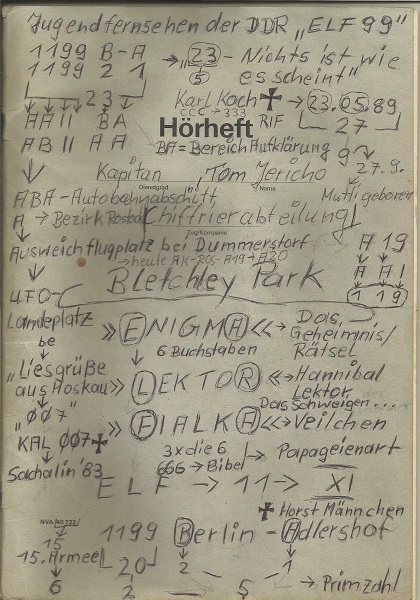 Jugendfernsehen der DDR „ELF 99"
1199 B-A → „23 - Nichts ist wie
1199 2 1 5 es scheint"
23 Karl Koch ✠ → 23.05.89
CCC → 333
AA || BA Hörheft RIF 27
AB || AA BA = Bereich Aufklärung 9
Kapitän „Tom Jericho 27.9.
Dienstgrad Name
ABA-Autobahnabschnitt, Mutti geboren
A → Bezirk Rostock Chiffrierabteilung
Zug/Kompanie
Ausweichflugplatz bei Dummerstorf A 19
→ heute AK-ROS-A19→A20
Bletchley Park A A I
UFO- 1 19
Landeplatz » ENIGMA « Das
be Geheimnis/
6 Buchstaben Rätsel
„Liesgrüße » LEKTOR «→ Hannibal
aus Moskau Lektor
Das Schweigen...
„007" » FIALKA «→ Veilchen
KAL 007 ✠ 3x die 6 → Papageienart
666 → Bibel
Sachalin '83 ELF → 11 → XI
✠ Horst Männchen
NVA 40 722
15 1199 Berlin - Adlershof
15. Armee 20 2 1
6 2 5 → Primzahl